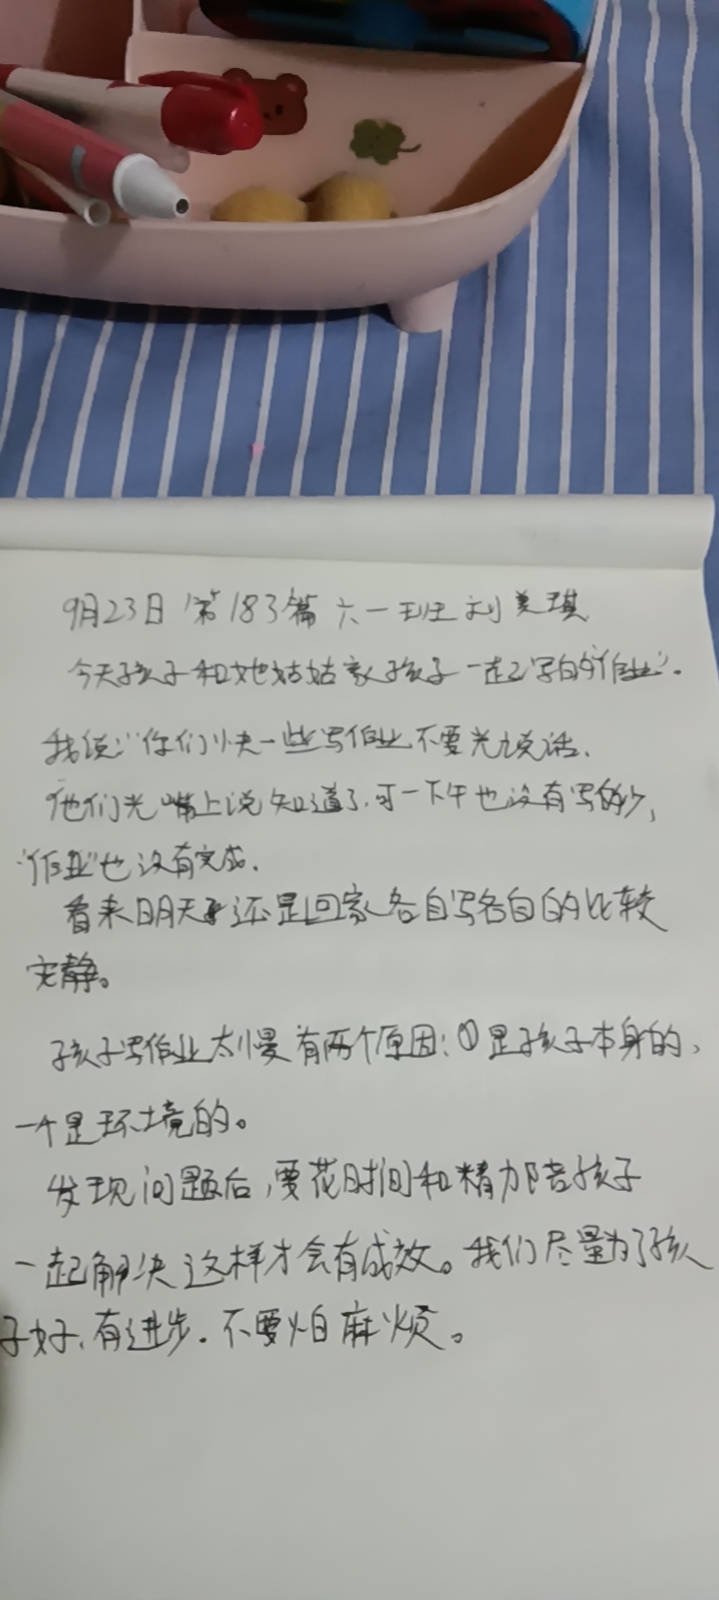 9月23日 第183篇 六一班 刘美琪
今天孩子和她姑姑家孩子一起写的"作业"。
我说:"你们快一些写作业不要光说话.
他们光嘴上说知道了.可一下午也没有写多少,
"作业"也没有完成.
看来明天还是回家各自写各自的比较
安静。
孩子写作业太慢有两个原因:①是孩子本身的、
一个是环境的。
发现问题后,要花时间和精力陪孩子
一起解决这样才会有成效。我们尽量为了孩
子好、有进步.不要怕麻烦。